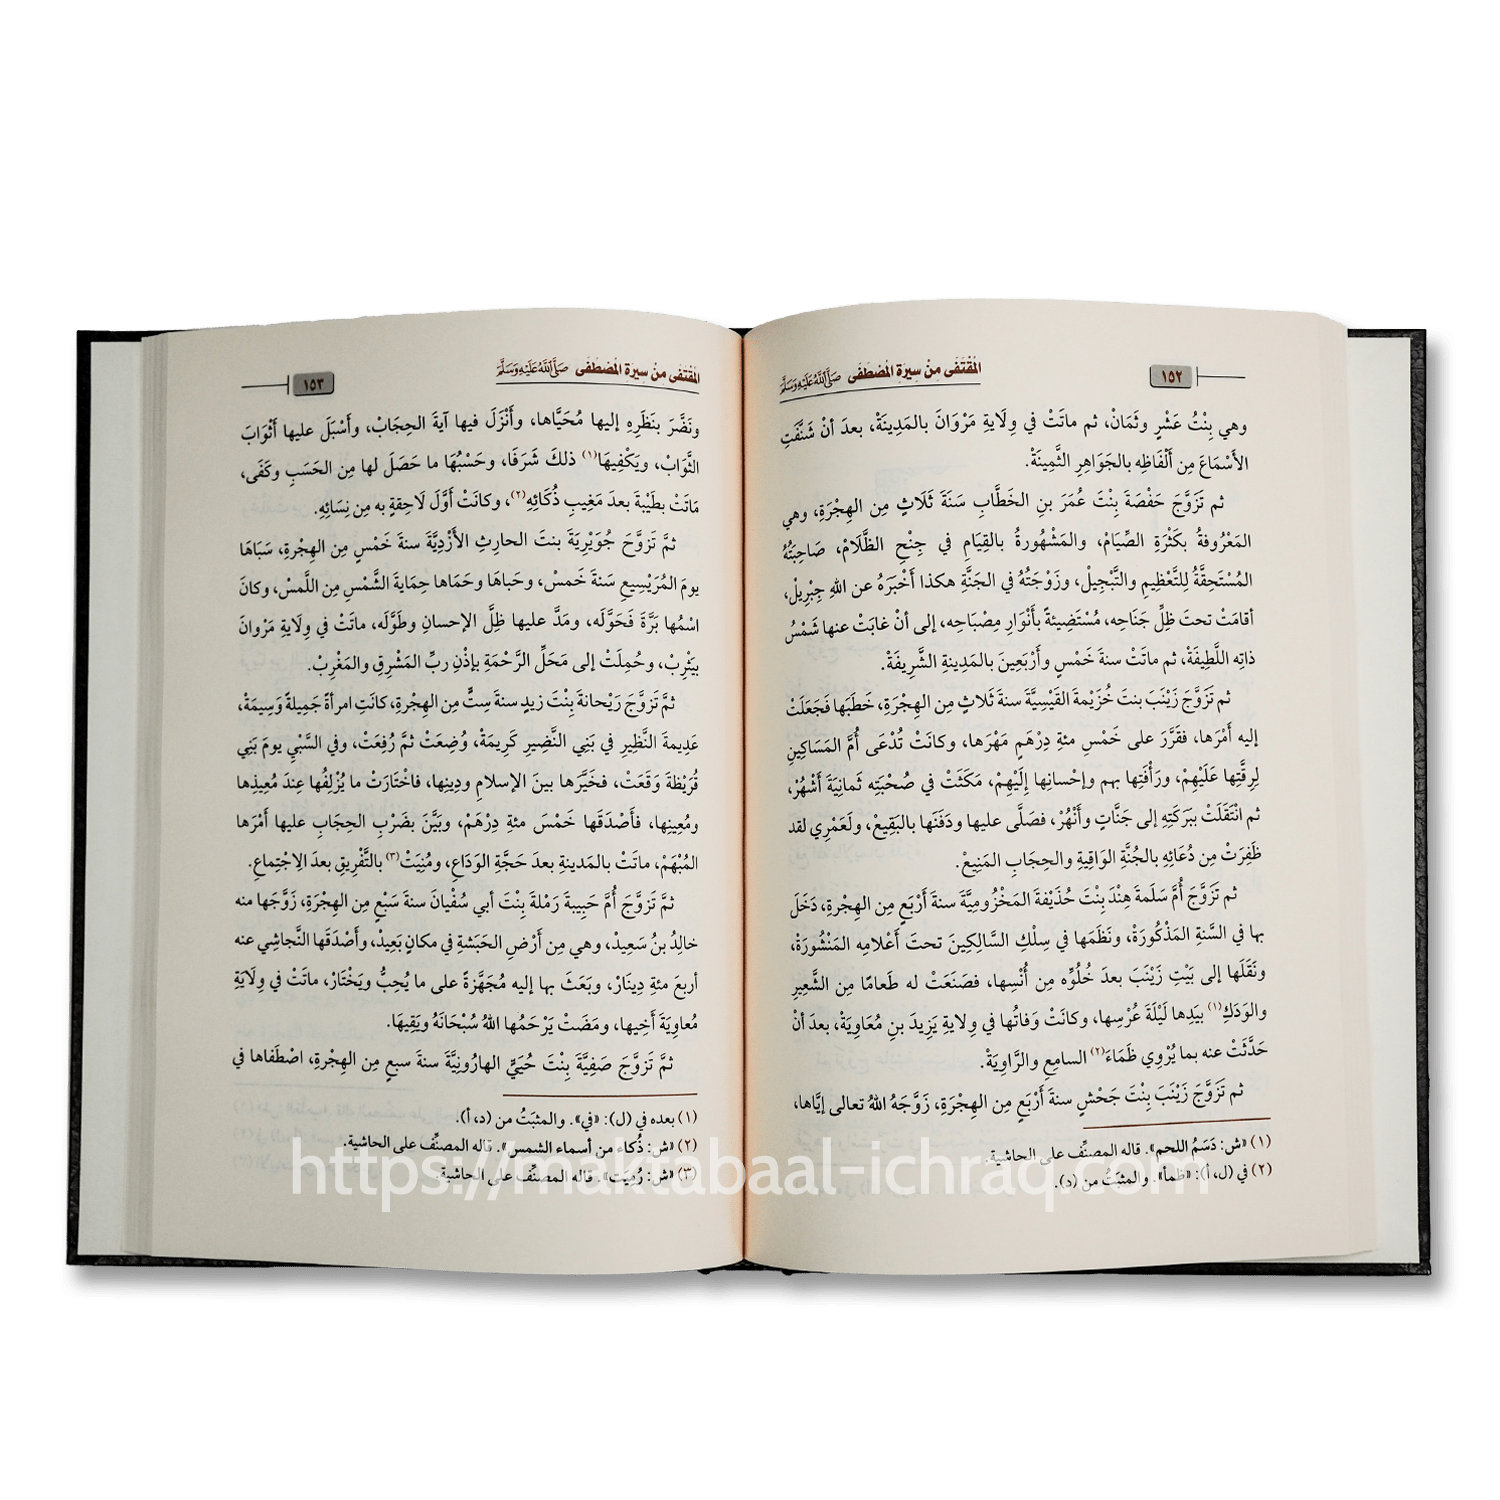 ١٥٢
المقتفى من سيرة المصطفى صَلَّى اللَّهُ عَلَيْهِ وَسَلَّمَ
وهي بِنْتُ عَشْرٍ وثَمَانْ، ثم ماتَتْ في وِلَايةِ مَرْوَانَ بالمَدِينَةْ، بعدَ أنْ شَنَّفَتِ
الأَسْمَاعَ مِن أَلْفَاظِه بالجَوَاهِرِ الثَّمِينَةْ.
ثم تَزَوَّجَ حَفْصَةَ بِنْتَ عُمَرَ بنِ الخَطَّابِ سَنَةَ ثَلَاثٍ مِن الهِجْرَةِ، وهي
المَعْرُوفةُ بكَثْرَةِ الصِّيَامْ، والمَشْهُورةُ بالقِيَامِ في جِنْحِ الظَّلَامْ، صَاحِبَتُهُ
المُسْتَحِقَّةُ لِلتَّعْظِيمِ والتَّبْجِيلْ، وزَوْجَتُهُ في الجَنَّةِ هكذا أَخْبَرَهُ عن اللهِ جِبْرِيلْ،
أقامَتْ تحتَ ظِلِّ جَنَاحِه، مُسْتَضِيئةً بأَنْوَارِ مِصْبَاحِه، إلى أنْ غابَتْ عنها شَمْسُ
ذاتِه اللَّطِيفَةْ، ثم ماتَتْ سنةَ خَمْسٍ وأَرْبَعِينَ بالمَدِينةِ الشَّرِيفَةْ.
ثم تَزَوَّجَ زَيْنَبَ بنتَ خُزَيْمةَ القَيْسِيَّةَ سنةَ ثَلاثٍ مِن الهِجْرَةِ، خَطَبَها فَجَعَلَتْ
إليه أَمْرَها، فقَرَّرَ على خَمْسِ مئةِ دِرْهَمٍ مَهْرَها، وكانَتْ تُدْعَى أُمَّ المَسَاكِينِ
لِرِقَّتِها عَلَيْهِمْ، ورَأْفَتِها بهم وإحْسانِها إِلَيْهِمْ، مَكَثَتْ في صُحْبَتِه ثَمانِيَةَ أَشْهُرْ،
ثم انْتَقَلَتْ ببَرَكَتِهِ إلى جَنَّاتٍ وأَنْهُرْ، فصَلَّى عليها ودَفَنَها بالبَقِيعْ، ولَعَمْرِي لقد
ظَفِرَتْ مِن دُعَائِهِ بالجُنَّةِ الوَاقِيةِ والحِجَابِ المَنِيعْ.
ثم تَزَوَّجَ أُمَّ سَلَمةَ هِنْدَ بِنْتَ حُذَيْفةَ المَخْزُومِيَّةَ سنةَ أَرْبَعٍ مِن الهِجْرةِ، دَخَلَ
بها في السَّنةِ المَذْكُورَةْ، ونَظَمَها في سِلْكِ السَّالِكِينَ تحتَ أَعْلامِه المَنْشُورَةْ،
ونَقَلَها إلى بَيْتِ زَيْنَبَ بعدَ خُلُوِّه مِن أُنْسِها، فصَنَعَتْ له طَعامًا مِن الشَّعِيرِ
والوَدَكِ(١) بيَدِها لَيْلَةَ عُرْسِها، وكانَتْ وَفاتُها في وِلايةِ يَزِيدَ بنِ مُعَاوِيَةْ، بعدَ أنْ
حَدَّثَتْ عنه بما يُرْوِي ظَمَاءَ(٢) السامِعِ والرَّاوِيَةْ.
ثم تَزَوَّجَ زَيْنَبَ بِنْتَ جَحْشٍ سنةَ أَرْبَعٍ مِن الهِجْرَةِ، زَوَّجَهُ اللهُ تعالى إيَّاها،
(١) «ش: دَسَمُ اللحم». قاله المصنِّف على الحاشية.
(٢) في (ل، أ): «ظمأ». والمثبَتُ من (د).
المقتفى من سيرة المصطفى صَلَّى اللَّهُ عَلَيْهِ وَسَلَّمَ
١٥٣
ونَضَّرَ بنَظَرِهِ إليها مُحَيَّاها، وأَنْزَلَ فيها آيةَ الحِجَابْ، وأَسْبَلَ عليها أَثْوَابَ
الثَّوَابْ، ويَكْفِيهَا(١) ذلكَ شَرَفَا، وحَسْبُهَا ما حَصَلَ لها مِن الحَسَبِ وكَفَى،
مَاتَتْ بطَيْبةَ بعدَ مَغِيبِ ذُكَائِهِ(٢)، وكانَتْ أَوَّلَ لَاحِقةٍ به مِن نِسَائِهِ.
ثمَّ تَزوَّجَ جُوَيْرِيَةَ بنتَ الحارِثِ الأَزْدِيَّةَ سنةَ خَمْسٍ مِن الهِجْرةِ، سَبَاهَا
يومَ المُرَيْسِيعِ سَنَةَ خَمسْ، وحَباهَا وحَمَاها حِمَايةَ الشَّمْسِ مِن اللَّمسْ، وكانَ
اسْمُها بَرَّةَ فَحَوَّلَه، ومَدَّ عليها ظِلَّ الإحسانِ وطَوَّلَه، ماتَتْ في وِلَايةِ مَرْوانَ
بيَثْرِبْ، وحُمِلَتْ إلى مَحَلِّ الرَّحْمَةِ بإذْنِ ربِّ المَشْرِقِ والمَغْرِبْ.
ثمَّ تَزَوَّجَ رَيْحانةَ بِنْتَ زيدٍ سنةَ سِتٍّ مِن الهِجْرةِ، كانَتِ امرأةً جَمِيلةً وَسِيمَةْ،
عَدِيمةَ النَّظِيرِ في بَنِي النَّضِيرِ كَرِيمَةْ، وُضِعَتْ ثمَّ رُفِعَتْ، وفي السَّبْيِ يومَ بَنِي
قُرَيْظةَ وَقَعَتْ، فخَيَّرَها بينَ الإسلامِ ودِينِها، فاخْتارَتْ ما يُزْلِفُها عِندَ مُعِيذِها
ومُعِينِها، فأَصْدَقَها خَمْسَ مئةِ دِرْهَمْ، وبَيَّنَ بضَرْبِ الحِجَابِ عليها أَمْرَها
المُبْهَمْ، ماتَتْ بالمَدينةِ بعدَ حَجَّةِ الوَدَاعِ، ومُنِيَتْ(٣) بالتَّفْرِيقِ بعدَ الاِجْتِماعِ.
ثمَّ تَزَوَّجَ أُمَّ حَبِيبةَ رَمْلةَ بِنْتَ أبي سُفْيانَ سنةَ سَبْعٍ مِن الهِجْرَةِ، زَوَّجَها منه
خالِدُ بنُ سَعِيدْ، وهي مِن أَرْضِ الحَبَشةِ في مكانٍ بَعِيدْ، وأَصْدَقَها النَّجاشِي عنه
أربعَ مئةِ دِينَارْ، وبَعَثَ بها إليه مُجَهَّزةً على ما يُحِبُّ ويَخْتَارْ، ماتَتْ في وِلَايَةِ
مُعاوِيَةَ أَخِيها، ومَضَتْ يَرْحَمُها اللهُ سُبْحَانَهُ ويَقِيهَا.
ثمَّ تَزوَّجَ صَفِيَّةَ بِنْتَ حُيَيٍّ الهارُونِيَّةَ سنةَ سبعٍ مِن الهِجْرةِ، اصْطَفاها في
(١) بعده في (ل): «في». والمثبَتُ من (د، أ).
(٢) «ش: ذُكاء من أسماء الشمس». قاله المصنِّف على الحاشية.
(٣) «ش: رُمِيَت». قاله المصنِّف على الحاشية.
https://maktabaal-ichraq.com